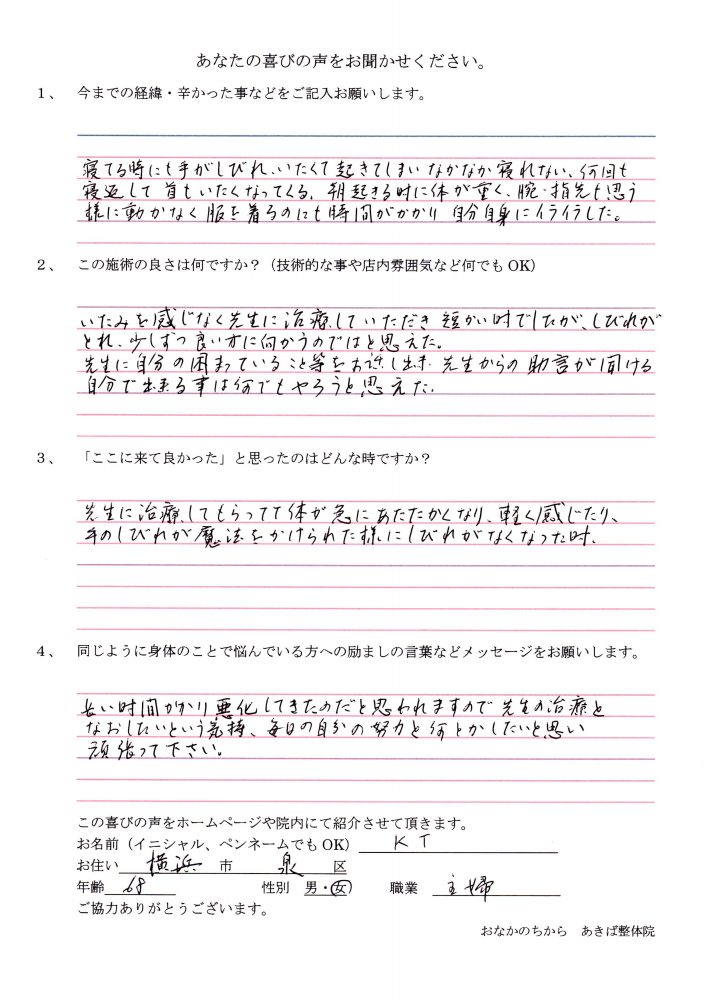 あなたの喜びの声をお聞かせください。
１、　今までの経緯・辛かった事などをご記入お願いします。
寝てる時にも手がしびれ、いたくて起きてしまいなかなか寝れない、何回も
寝返して首もいたくなってくる。朝起きる時に体が重く、腕・指先も思う
様に動かなく服を着るのにも時間がかかり自分自身にイライラした。
２、　この施術の良さは何ですか？（技術的な事や店内雰囲気など何でも OK）
いたみを感じなく先生に治療していただき短かい時でしたが、しびれが
とれ、少しずつ良い方に向かうのではと思えた。
先生に自分の困まっていること等をお話し出来、先生からの助言が聞ける
自分で出来る事は何でもやろうと思えた。
３、　「ここに来て良かった」と思ったのはどんな時ですか？
先生に治療してもらってて体が急にあたたかくなり、軽く感じたり、
手のしびれが魔法をかけられた様にしびれがなくなった時、
４、　同じように身体のことで悩んでいる方への励ましの言葉などメッセージをお願いします。
長い時間かかり悪化してきたのだと思われますので先生の治療と
なおしたいという気持、毎日の自分の努力と何とかしたいと思い
頑張って下さい。
この喜びの声をホームページや院内にて紹介させて頂きます。
お名前（イニシャル、ペンネームでも OK） K T
お住い 横浜 市 泉 区
年齢 68 性別 男・女） 職業 主婦
ご協力ありがとうございます。
おなかのちから　あきば整体院